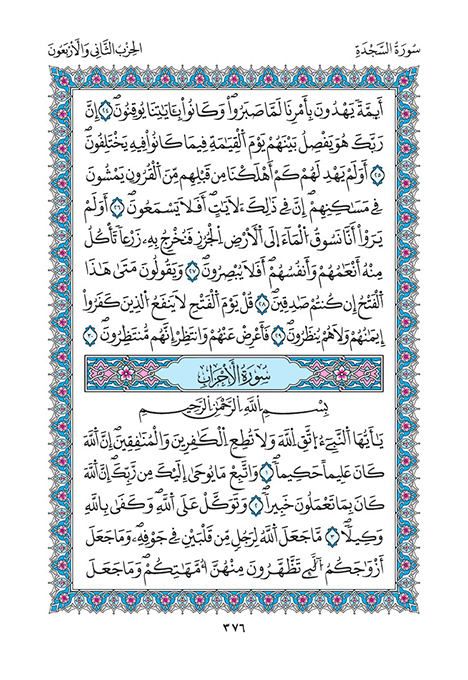 سُورَةُ السَّجْدَةِ
الحِزْبُ الثَّانِي وَالْأَرْبَعُونَ
أَيِمَّةً يَهْدُونَ بِأَمْرِنَا لَمَّا صَبَرُواْ وَكَانُواْ بِـَٔايَٰتِنَا يُوقِنُونَ ۝٢٤ إِنَّ
رَبَّكَ هُوَ يَفْصِلُ بَيْنَهُمْ يَوْمَ ٱلْقِيَٰمَةِ فِيمَا كَانُواْ فِيهِ يَخْتَلِفُونَ
۝٢٥ أَوَلَمْ يَهْدِ لَهُمْ كَمْ أَهْلَكْنَا مِن قَبْلِهِم مِّنَ ٱلْقُرُونِ يَمْشُونَ
فِي مَسَٰكِنِهِمْ إِنَّ فِي ذَٰلِكَ ءَلَايَٰتٍ أَفَلَا يَسْمَعُونَ ۝٢٦ أَوَلَمْ
يَرَوْاْ اَنَّا نَسُوقُ ٱلْمَآءَ إِلَى ٱلْأَرْضِ ٱلْجُرُزِ فَنُخْرِجُ بِهِۦ زَرْعاً تَاكُلُ
مِنْهُ أَنْعَٰمُهُمْ وَأَنفُسُهُمْ أَفَلَا يُبْصِرُونَ ۝٢٧ وَيَقُولُونَ مَتَىٰ هَٰذَا
ٱلْفَتْحُ إِن كُنتُمْ صَٰدِقِينَ ۝٢٨ قُلْ يَوْمَ ٱلْفَتْحِ لَا يَنفَعُ ٱلَّذِينَ كَفَرُواْ
إِيمَٰنُهُمْ وَلَا هُمْ يُنظَرُونَ ۝٢٩ فَأَعْرِضْ عَنْهُمْ وَٱنتَظِرِ ٱنَّهُم مُّنتَظِرُونَ ۝٣٠
سُورَةُ الْأَحْزَابِ
بِسْمِ اللَّهِ الرَّحْمَٰنِ الرَّحِيمِ
يَٰٓأَيُّهَا ٱلنَّبِيٓءُ ٱتَّقِ ٱللَّهَ وَلَا تُطِعِ ٱلْكَٰفِرِينَ وَٱلْمُنَٰفِقِينَ إِنَّ ٱللَّهَ
كَانَ عَلِيماً حَكِيماً ۝١ وَٱتَّبِعْ مَا يُوحَىٰٓ إِلَيْكَ مِن رَّبِّكَ إِنَّ ٱللَّهَ
كَانَ بِمَا تَعْمَلُونَ خَبِيراً ۝٢ وَتَوَكَّلْ عَلَى ٱللَّهِ وَكَفَىٰ بِٱللَّهِ
وَكِيلاً ۝٣ مَّا جَعَلَ ٱللَّهُ لِرَجُلٍ مِّن قَلْبَيْنِ فِي جَوْفِهِۦ وَمَا جَعَلَ
أَزْوَٰجَكُمُ ٱلَّٰٓـِٔي تَظَّهَّرُونَ مِنْهُنَّ أُمَّهَٰتِكُمْ وَمَا جَعَلَ
٣٧٦